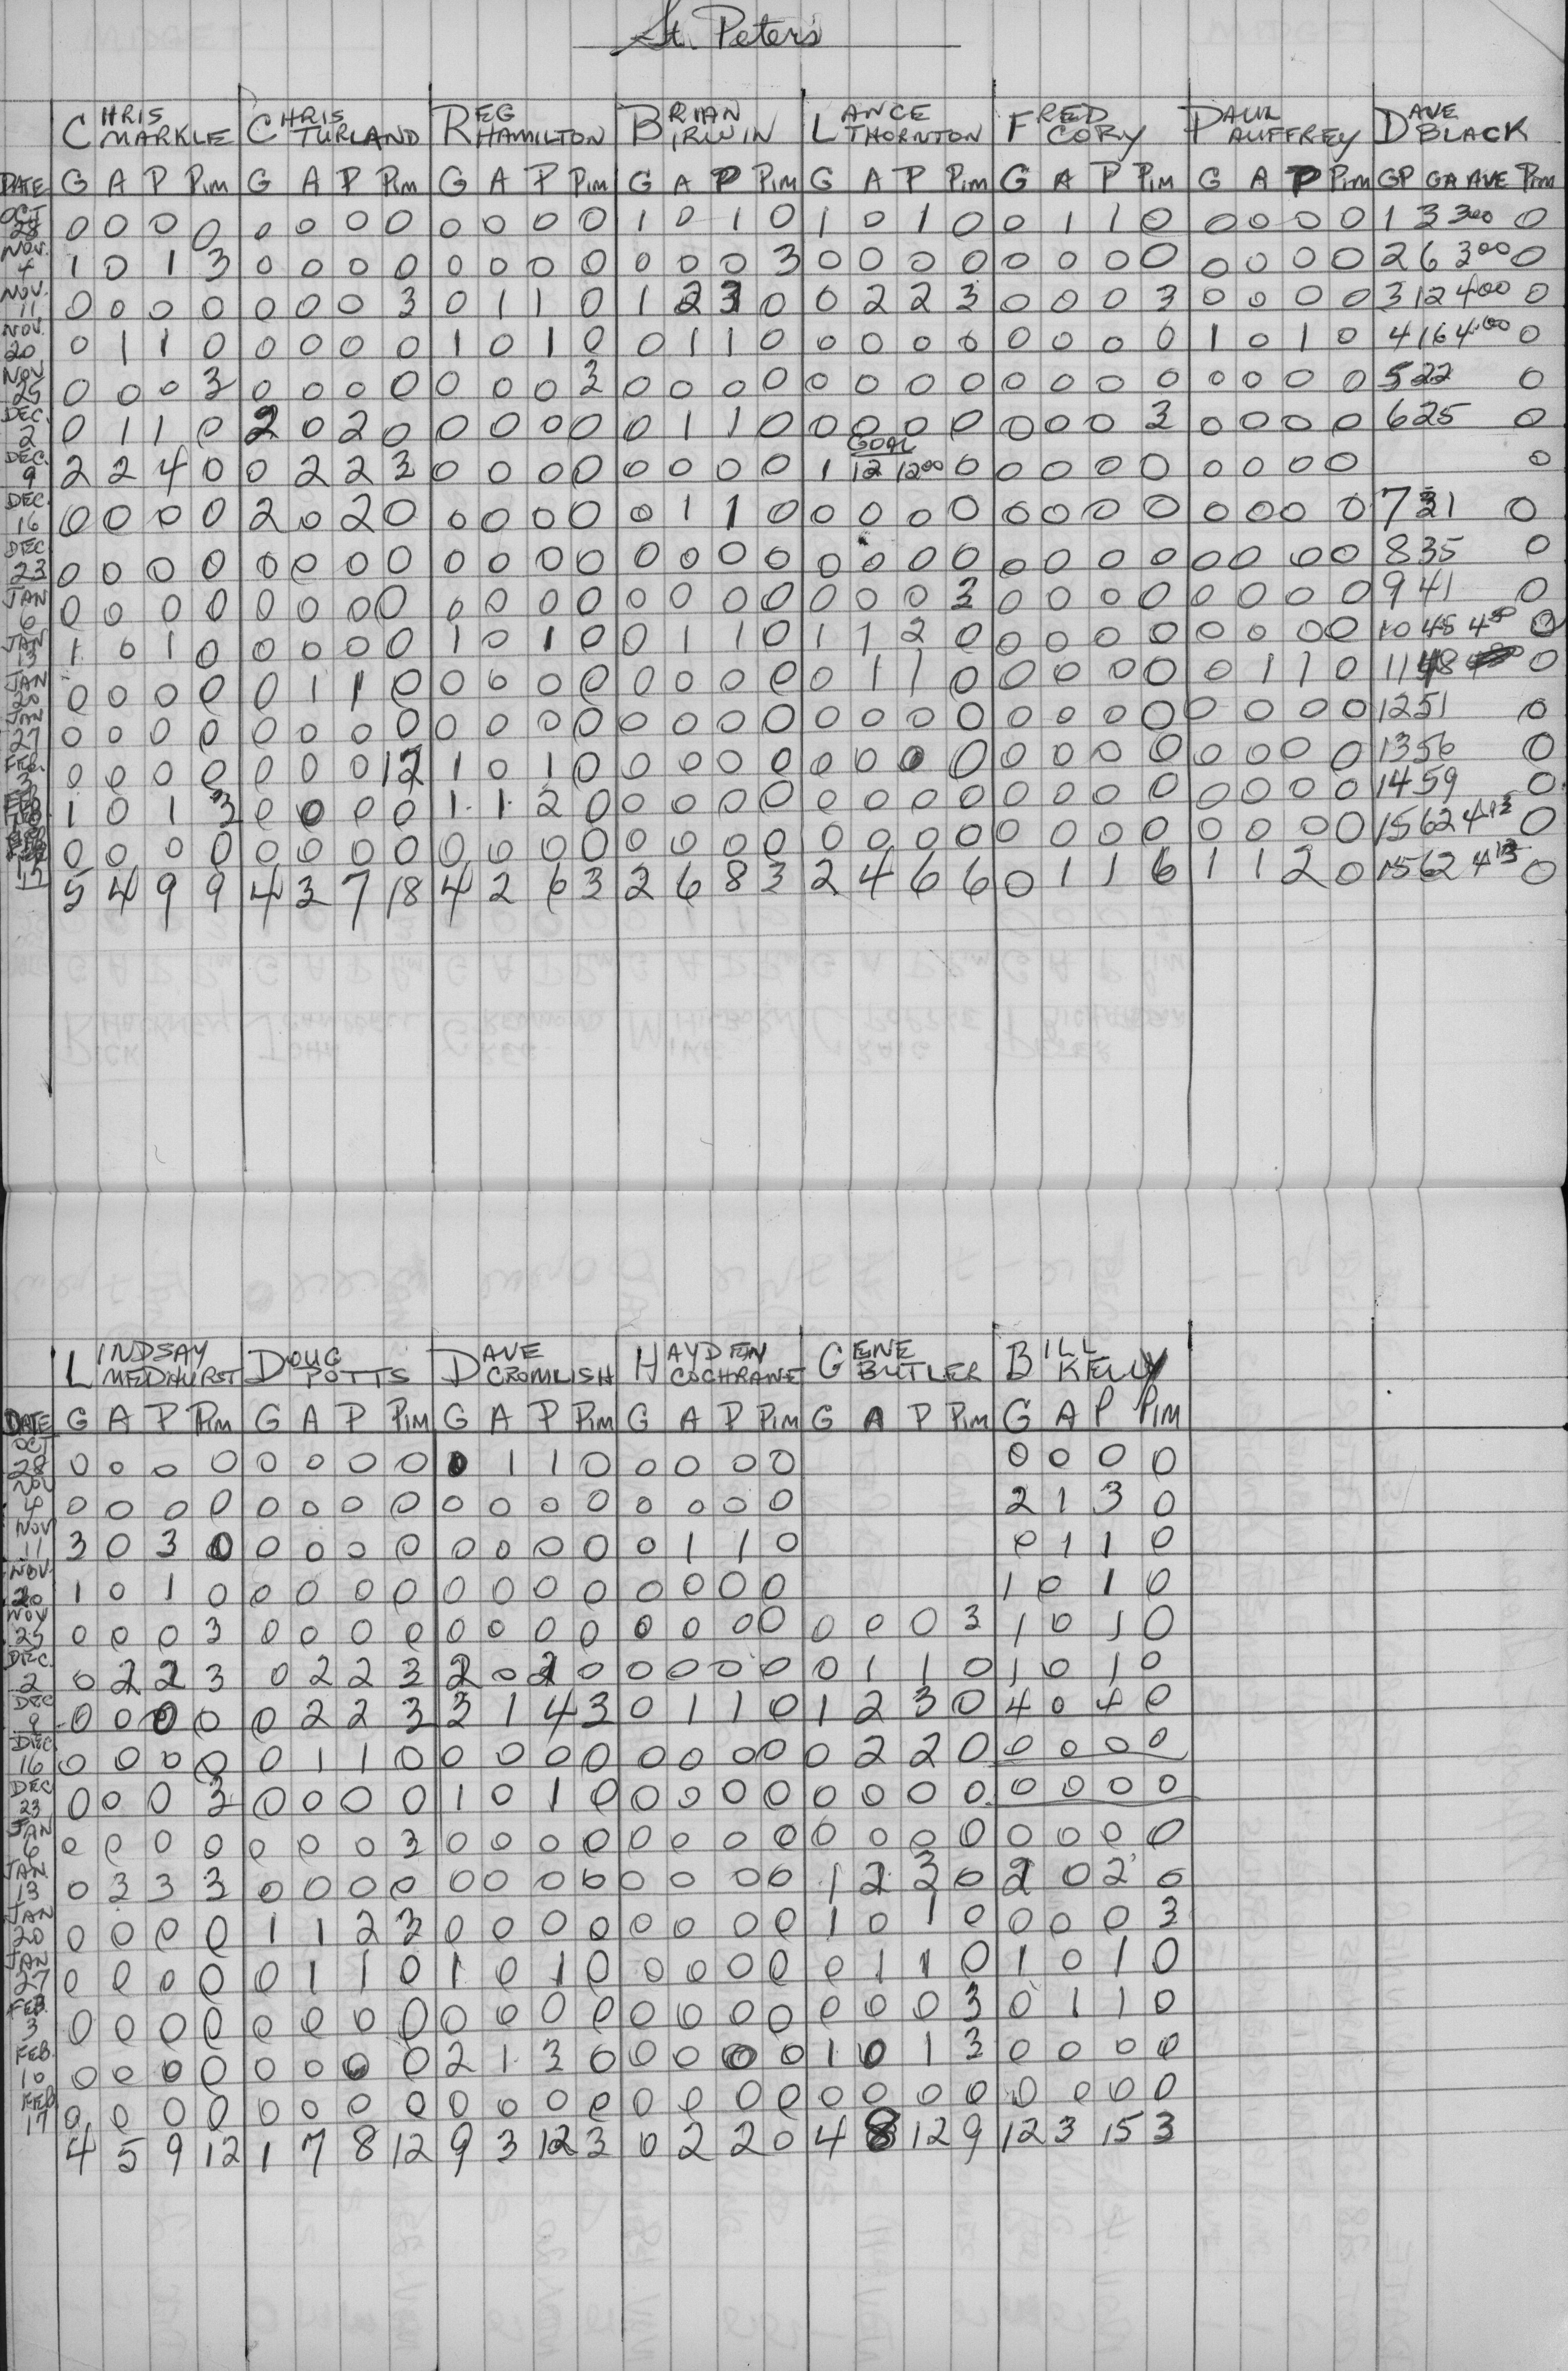 St. Peter's
CHRIS MARKLE CHRIS TURLAND REG HAMILTON BRIAN IRWIN LANCE THORNTON FRED CORY PAUL AUFFREY DAVE BLACK
DATE G A P PIM G A P PIM G A P PIM G A P PIM G A P PIM G A P PIM G A P PIM GP GA AVE PIM
OCT 28 0 0 0 0 0 0 0 0 0 0 0 0 1 0 1 0 1 0 1 0 0 1 1 0 0 0 0 0 1 3 3.00 0
NOV. 4 1 0 1 3 0 0 0 0 0 0 0 0 0 0 0 3 0 0 0 0 0 0 0 0 0 0 0 0 2 6 3.00 0
NOV. 11 0 0 0 0 0 0 0 3 0 1 1 0 1 2 3 0 0 2 2 3 0 0 0 3 0 0 0 0 3 12 4.00 0
NOV. 20 0 1 1 0 0 0 0 0 1 0 1 0 0 1 1 0 0 0 0 0 0 0 0 0 1 0 1 0 4 16 4.00 0
NOV 25 0 0 0 3 0 0 0 0 0 0 0 3 0 0 0 0 0 0 0 0 0 0 0 0 0 0 0 0 5 22 0
DEC. 2 0 1 1 0 2 0 2 0 0 0 0 0 0 1 1 0 0 0 0 0 0 0 0 3 0 0 0 0 6 25 0
GOAL
DEC. 9 2 2 4 0 0 2 2 3 0 0 0 0 0 0 0 0 1 12 12.00 0 0 0 0 0 0 0 0 0 0
DEC. 16 0 0 0 0 2 0 2 0 0 0 0 0 0 1 1 0 0 0 0 0 0 0 0 0 0 0 0 0 7 31 0
DEC 23 0 0 0 0 0 0 0 0 0 0 0 0 0 0 0 0 0 0 0 0 0 0 0 0 0 0 0 0 8 35 0
JAN 6 0 0 0 0 0 0 0 0 0 0 0 0 0 0 0 0 0 0 0 3 0 0 0 0 0 0 0 0 9 41 0
JAN 13 1 0 1 0 0 0 0 0 1 0 1 0 0 1 1 0 1 1 2 0 0 0 0 0 0 0 0 0 10 45 4.50 0
JAN 20 0 0 0 0 0 1 1 0 0 0 0 0 0 0 0 0 0 1 1 0 0 0 0 0 0 1 1 0 11 48 0
JAN 27 0 0 0 0 0 0 0 0 0 0 0 0 0 0 0 0 0 0 0 0 0 0 0 0 0 0 0 0 12 51 0
FEB. 3 0 0 0 0 0 0 0 12 1 0 1 0 0 0 0 0 0 0 0 0 0 0 0 0 0 0 0 0 13 56 0
FEB 10 1 0 1 3 0 0 0 0 1 1 2 0 0 0 0 0 0 0 0 0 0 0 0 0 0 0 0 0 14 59 0
FEB 17 0 0 0 0 0 0 0 0 0 0 0 0 0 0 0 0 0 0 0 0 0 0 0 0 0 0 0 0 15 62 4.13 0
5 4 9 9 4 3 7 18 4 2 6 3 2 6 8 3 2 4 6 6 0 1 1 6 1 1 2 0 15 62 4.13 0
LINDSAY MEDHURST DOUG POTTS DAVE CROMLISH HAYDEN COCHRANE GENE BUTLER BILL KELLY
DATE G A P PIM G A P PIM G A P PIM G A P PIM G A P PIM G A P PIM
OCT 28 0 0 0 0 0 0 0 0 0 1 1 0 0 0 0 0 0 0 0 0
NOV 4 0 0 0 0 0 0 0 0 0 0 0 0 0 0 0 0 2 1 3 0
NOV 11 3 0 3 0 0 0 0 0 0 0 0 0 0 1 1 0 0 1 1 0
NOV. 20 1 0 1 0 0 0 0 0 0 0 0 0 0 0 0 0 1 0 1 0
NOV 25 0 0 0 3 0 0 0 0 0 0 0 0 0 0 0 0 0 0 0 3 1 0 1 0
DEC. 2 0 2 2 3 0 2 2 3 2 0 2 0 0 0 0 0 0 1 1 0 1 0 1 0
DEC 9 0 0 0 0 0 2 2 3 3 1 4 3 0 1 1 0 1 2 3 0 4 0 4 0
DEC 16 0 0 0 0 0 1 1 0 0 0 0 0 0 0 0 0 0 2 2 0 0 0 0 0
DEC 23 0 0 0 3 0 0 0 0 1 0 1 0 0 0 0 0 0 0 0 0 0 0 0 0
JAN 6 0 0 0 0 0 0 0 3 0 0 0 0 0 0 0 0 0 0 0 0 0 0 0 0
JAN 13 0 3 3 3 0 0 0 0 0 0 0 0 0 0 0 0 1 2 3 0 2 0 2 0
JAN 20 0 0 0 0 1 1 2 3 0 0 0 0 0 0 0 0 1 0 1 0 0 0 0 3
JAN 27 0 0 0 0 0 1 1 0 1 0 1 0 0 0 0 0 0 1 1 0 1 0 1 0
FEB. 3 0 0 0 0 0 0 0 0 0 0 0 0 0 0 0 0 0 0 0 3 0 1 1 0
FEB. 10 0 0 0 0 0 0 0 0 2 1 3 0 0 0 0 0 1 0 1 3 0 0 0 0
FEB 17 0 0 0 0 0 0 0 0 0 0 0 0 0 0 0 0 0 0 0 0 0 0 0 0
4 5 9 12 1 7 8 12 9 3 12 3 0 2 2 0 4 8 12 9 12 3 15 3